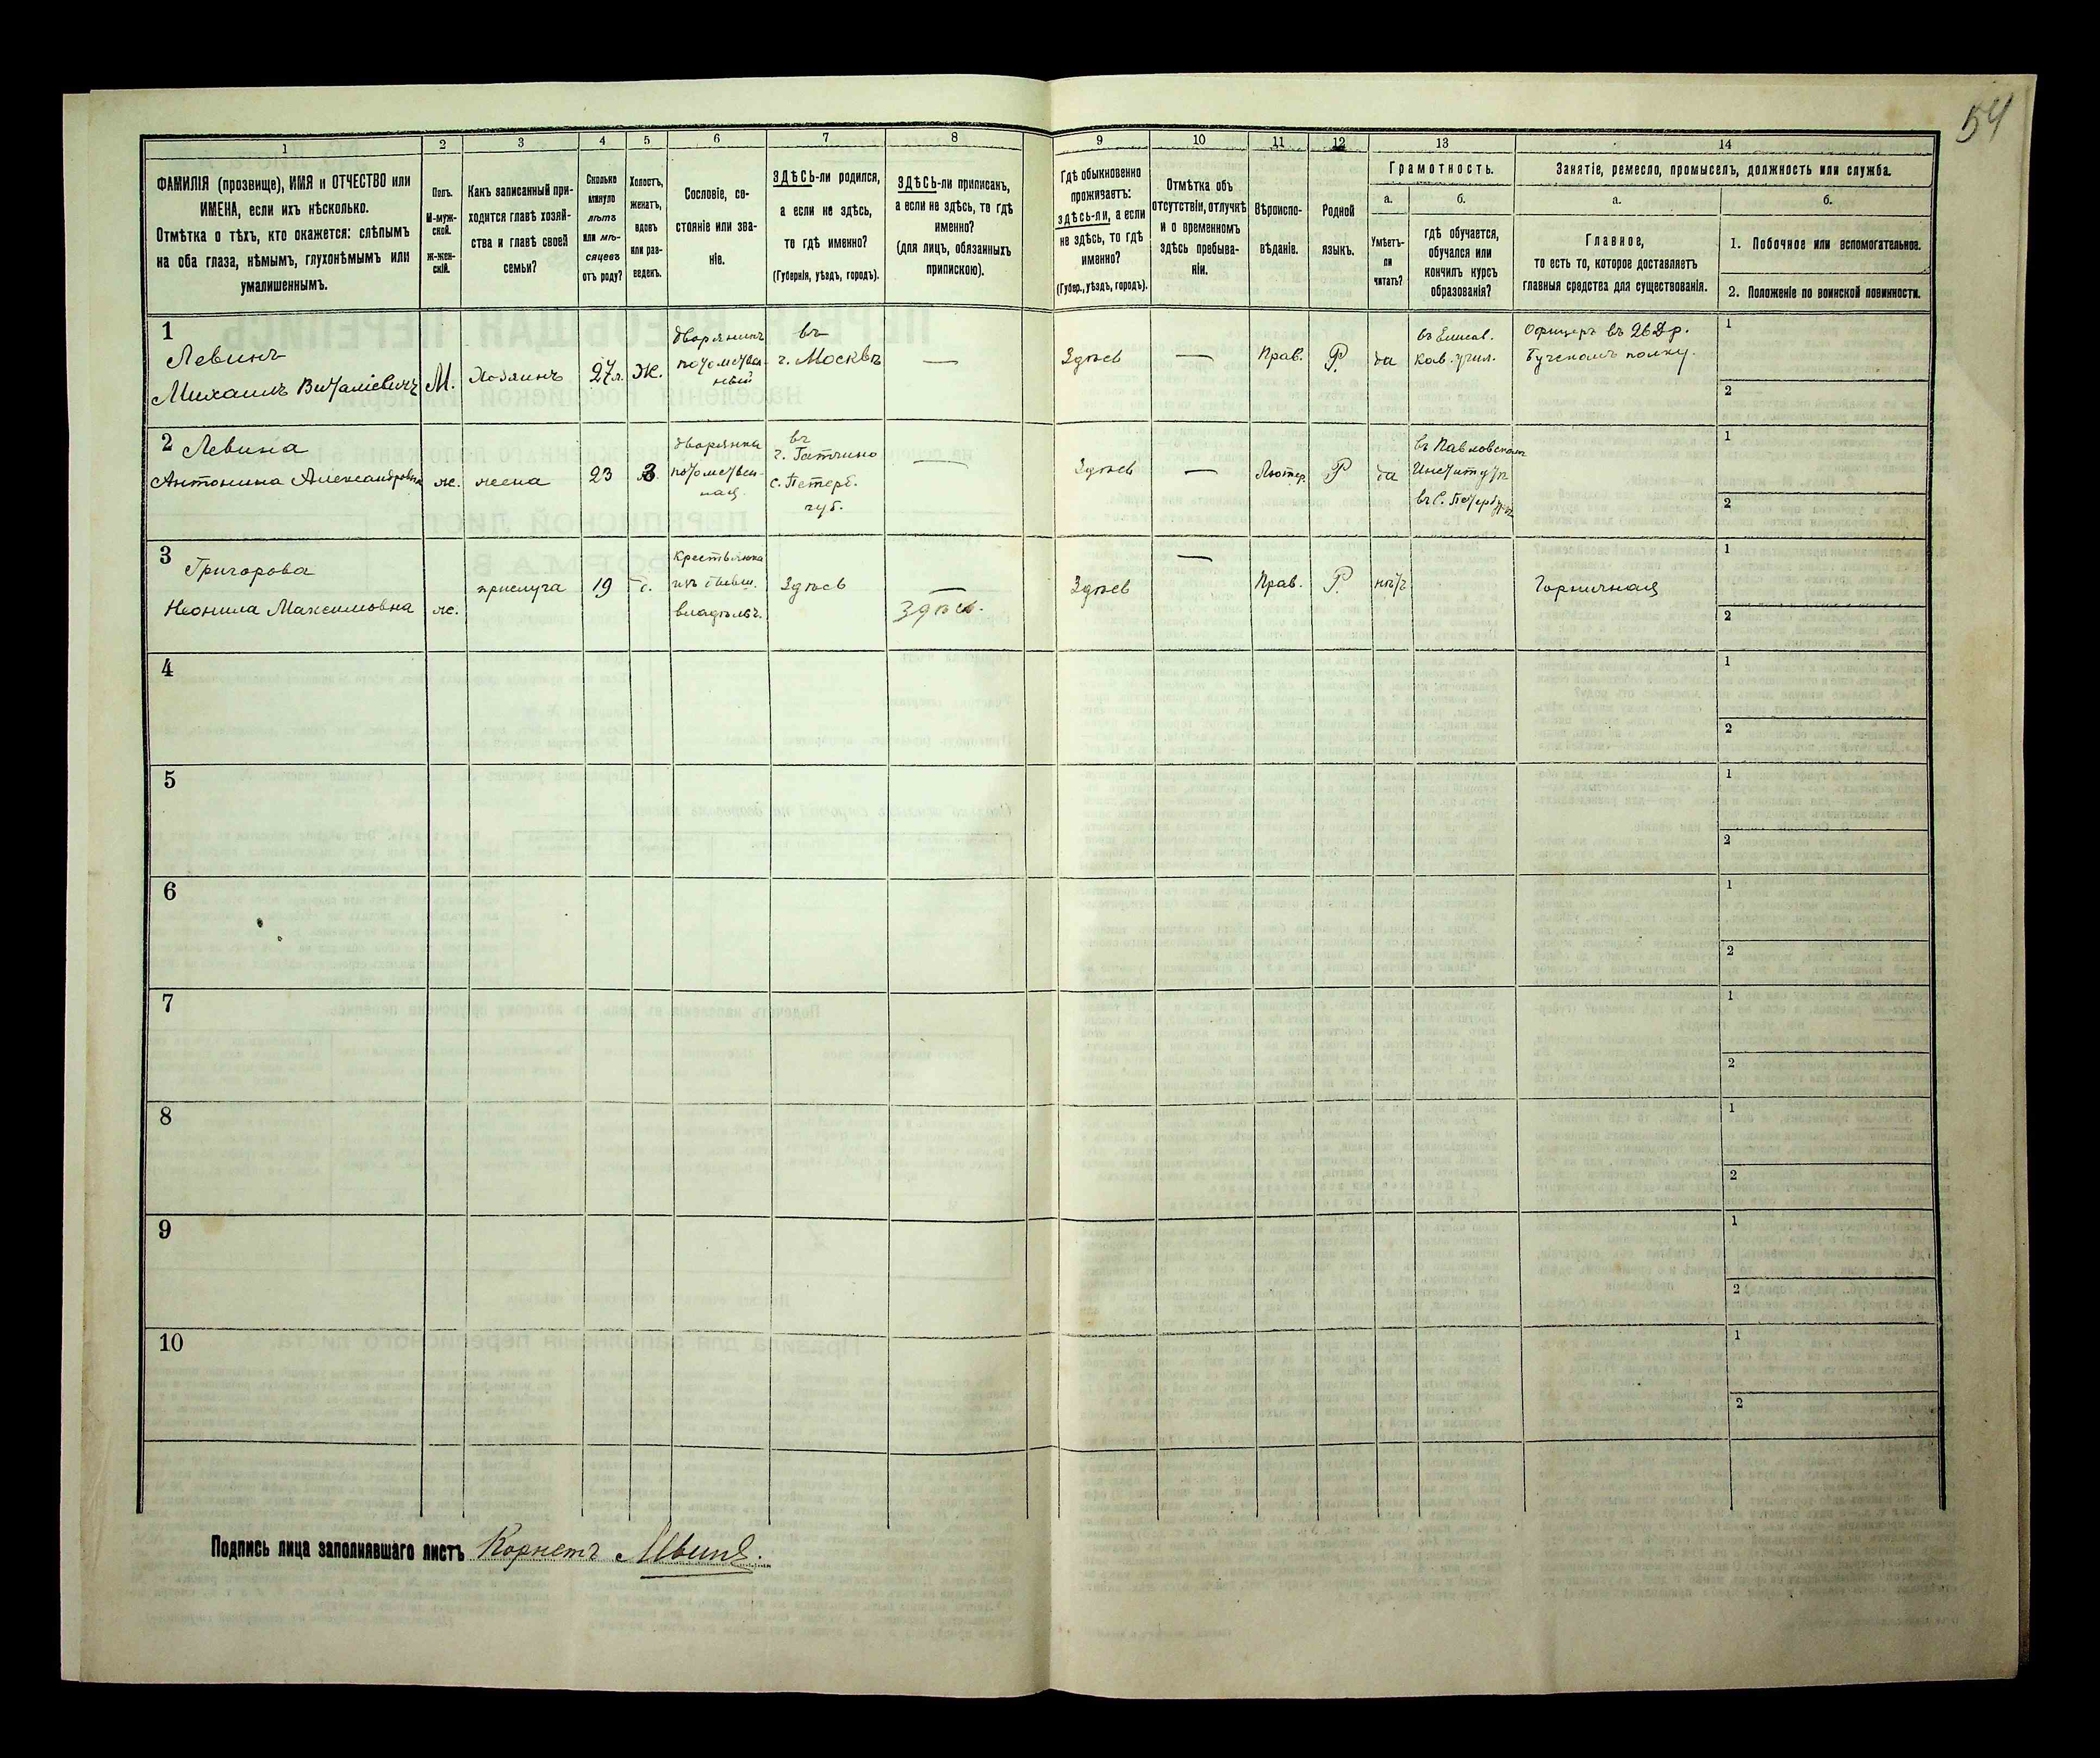 54
1
2
3
4
5
6
7
8
9
10
11
12
13
14
ФАМИЛІЯ (прозвище), ИМЯ и ОТЧЕСТВО или
ИМЕНА, если ихъ нѣсколько.
Отмѣтка о тѣхъ, кто окажется: слѣпымъ
на оба глаза, нѣмымъ, глухонѣмымъ или
умалишеннымъ.
Полъ.
М-муж-
ской.
Ж-жен-
скій.
Какъ записанный при-
ходится главѣ хозяй-
ства и главѣ своей
семьи?
Сколько
минуло
лѣтъ
или мѣ-
сяцевъ
отъ роду?
Холостъ,
женатъ,
вдовъ
или раз-
веденъ.
Сословіе, со-
стояніе или зва-
ніе.
ЗДѢСЬ-ли родился,
а если не здѣсь,
то гдѣ именно?
(Губернія, уѣздъ, городъ).
ЗДѢСЬ-ли приписанъ,
а если не здѣсь, то гдѣ
именно?
(для лицъ, обязанныхъ
припискою).
Гдѣ обыкновенно
проживаетъ:
здѣсь-ли, а если
не здѣсь, то гдѣ
именно?
(Губер., уѣздъ, городъ).
Отмѣтка объ
отсутствіи, отлучкѣ
и о временномъ
здѣсь пребыва-
ніи.
Вѣроиспо-
вѣданіе.
Родной
языкъ.
Грамотность.
а.
Умѣетъ-
ли
читать?
б.
гдѣ обучается,
обучался или
кончилъ курсъ
образованія?
Занятіе, ремесло, промыселъ, должность или служба.
а.
Главное,
то есть то, которое доставляетъ
главныя средства для существованія.
б.
1. Побочное или вспомогательное.
2. Положеніе по воинской повинности.
1
Левинъ
Михаилъ Виталіевичъ
М.
Хозяинъ
27л.
Ж.
дворянинъ
потомствен-
ный
въ
г. Москвѣ
—
Здѣсь
—
Прав.
Р.
да
въ Елисав.
Кав. учил.
Офицеръ въ 26 Др.
Бугскомъ полку.
1
2
2 Левина
Антонина Александровна
ж.
жена
23
З.
дворянка
потомствен-
ная
въ
г. Гатчино
С. Петерб.
губ.
—
Здѣсь
—
Лютер.
Р
да
въ Павловскомъ
Институтѣ
въ С. Петербургѣ
1
2
3
Григорова
Неонила Максимовна
ж.
прислуга
19
крестьянка
изъ бывш.
владѣльч.
Здѣсь
—
Здѣсь.
Здѣсь
—
Прав.
Р.
нѣтъ
Горничная
1
2
4
1
2
5
1
2
6
1
2
7
1
2
8
1
2
9
1
2
10
1
2
Подпись лица заполнявшаго листъ Корнетъ Левинъ.